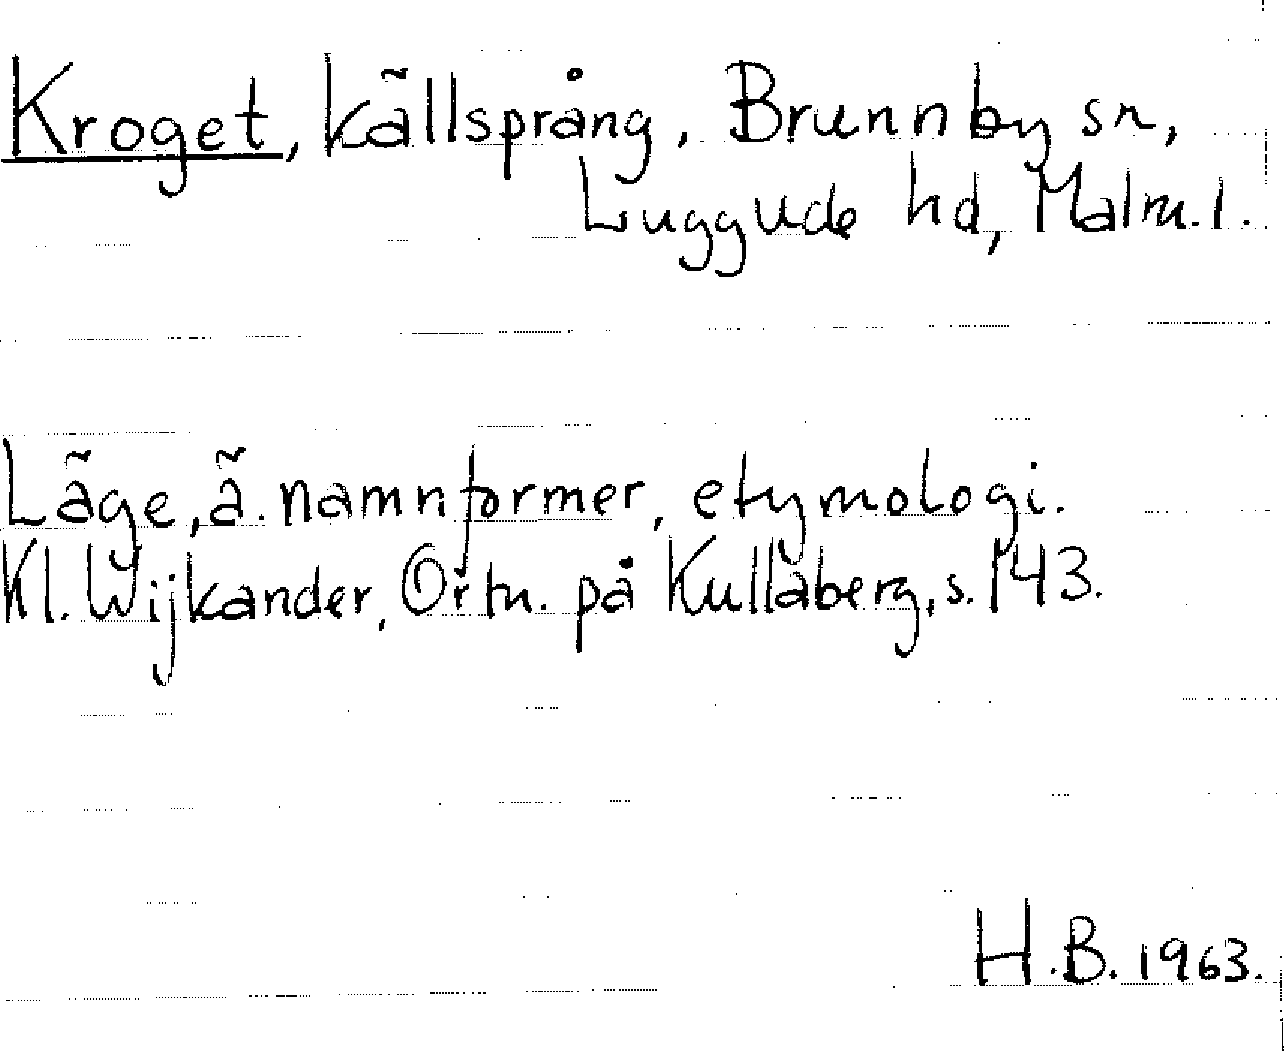 Kroget, källsprång, Brunnby sn,
Luggude hd, Malm.l.
Läge, ä. namnformer, etymologi.
Kl. Wijkander, Ortn. på Kullaberg, s. 143.
H.B. 1963.